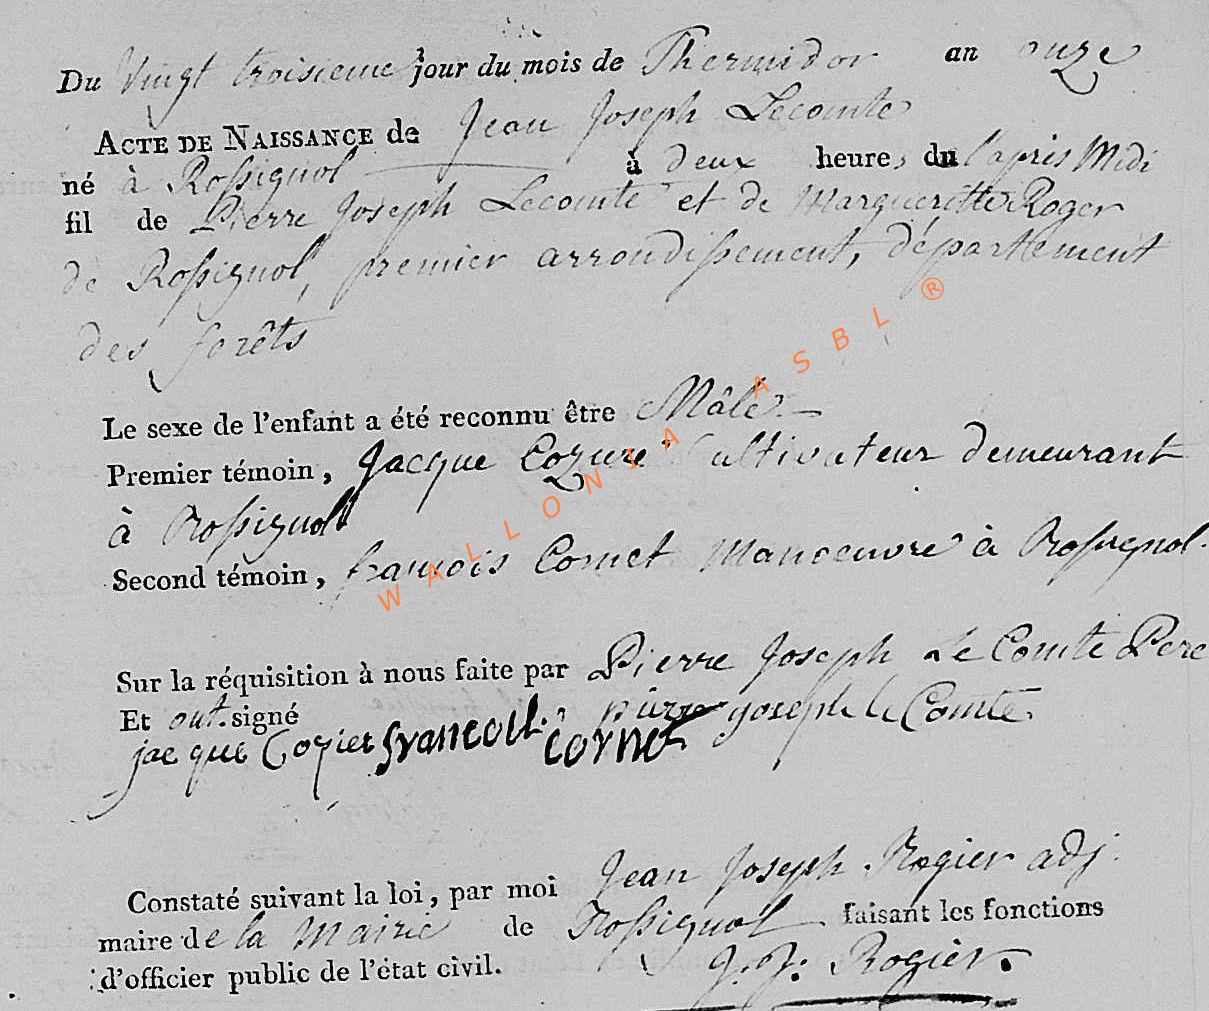 Du Vingt troisieme jour du mois de Thermidor an onze
ACTE DE NAISSANCE de Jean Joseph Lecomte
né à Rossignol à deux heure, du l'après Midi
fil de Pierre Joseph Lecomte et de Margueritte Roger
de Rossignol, premier arrondissement, département
des forêts
Le sexe de l'enfant a été reconnu être Mâle
Premier témoin, Jacque Cozure Cultivateur demeurant
à Rossignol
Second témoin, françois Cornet Manoeuvre à Rossignol.
Sur la réquisition à nous faite par Pierre Joseph Le Comte Pere
Et ont signé pierre joseph le Comte
jacque Cozier francoi cornet
Constaté suivant la loi, par moi Jean Joseph Rogier adj.
maire de la Mairie de Rossignol faisant les fonctions
d'officier public de l'état civil. J. J. Rogier.
WALLONIA ASBL ®